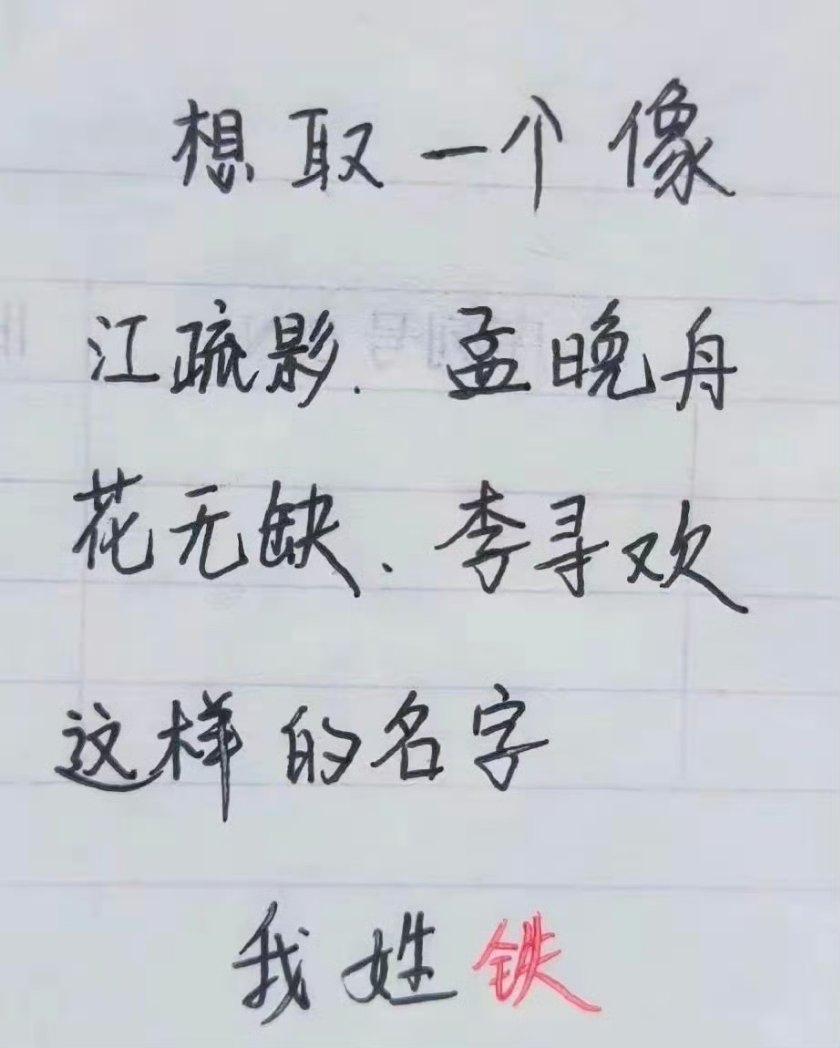 想取一个像
江疏影、孟晚舟
花无缺、李寻欢
这样的名字
我姓铁